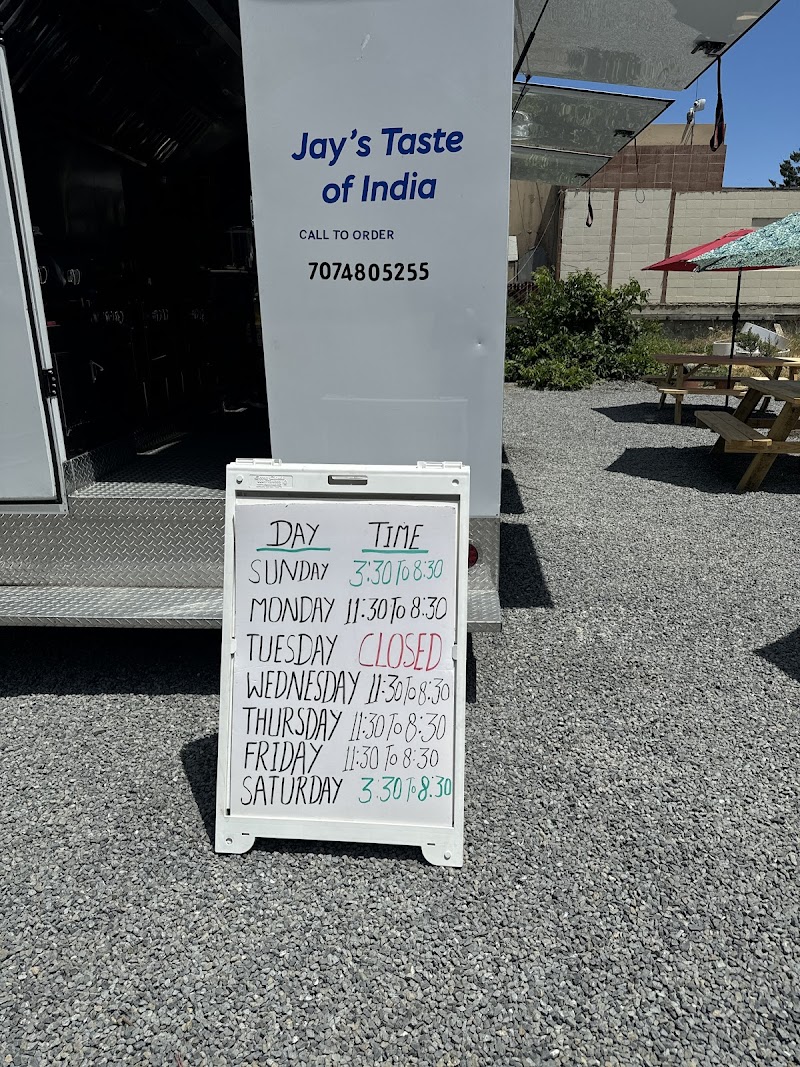 Jay's Taste
of India
CALL TO ORDER
7074805255
DAY TIME
SUNDAY 3:30 To 8:30
MONDAY 11:30 To 8:30
TUESDAY CLOSED
WEDNESDAY 11:30 To 8:30
THURSDAY 11:30 To 8:30
FRIDAY 11:30 To 8:30
SATURDAY 3:30 To 8:30